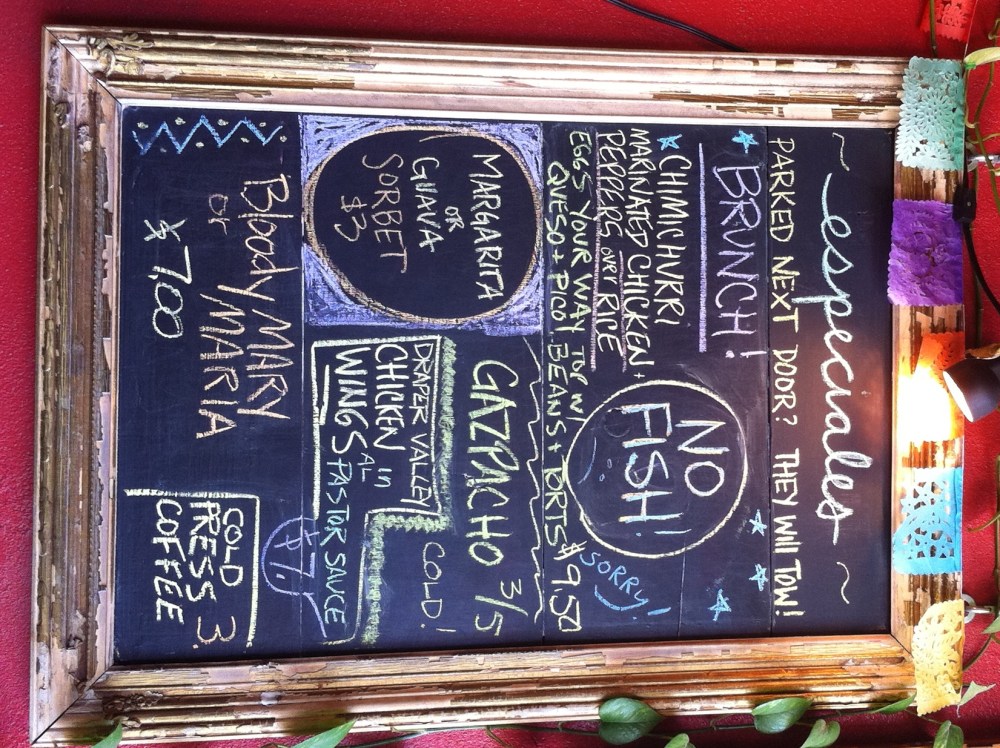 ~ especiales ~
PARKED NEXT DOOR? THEY WILL TOW!
BRUNCH!
CHIMICHURRI
MARINATED CHICKEN +
PEPPERS OVR RICE
EGGS YOUR WAY TOP'N
QUESO + PICO! BEANS + TORTS $9.50
NO
FISH!
SORRY!
MARGARITA
OR
GUAVA
SORBET
$3
GAZPACHO 3/5
COLD!
DRAPER VALLEY
CHICKEN in
WINGS AL
PASTOR SAUCE
$7.
Bloody/MARY
or MARIA
$7,00
COLD
PRESS 3.
COFFEE